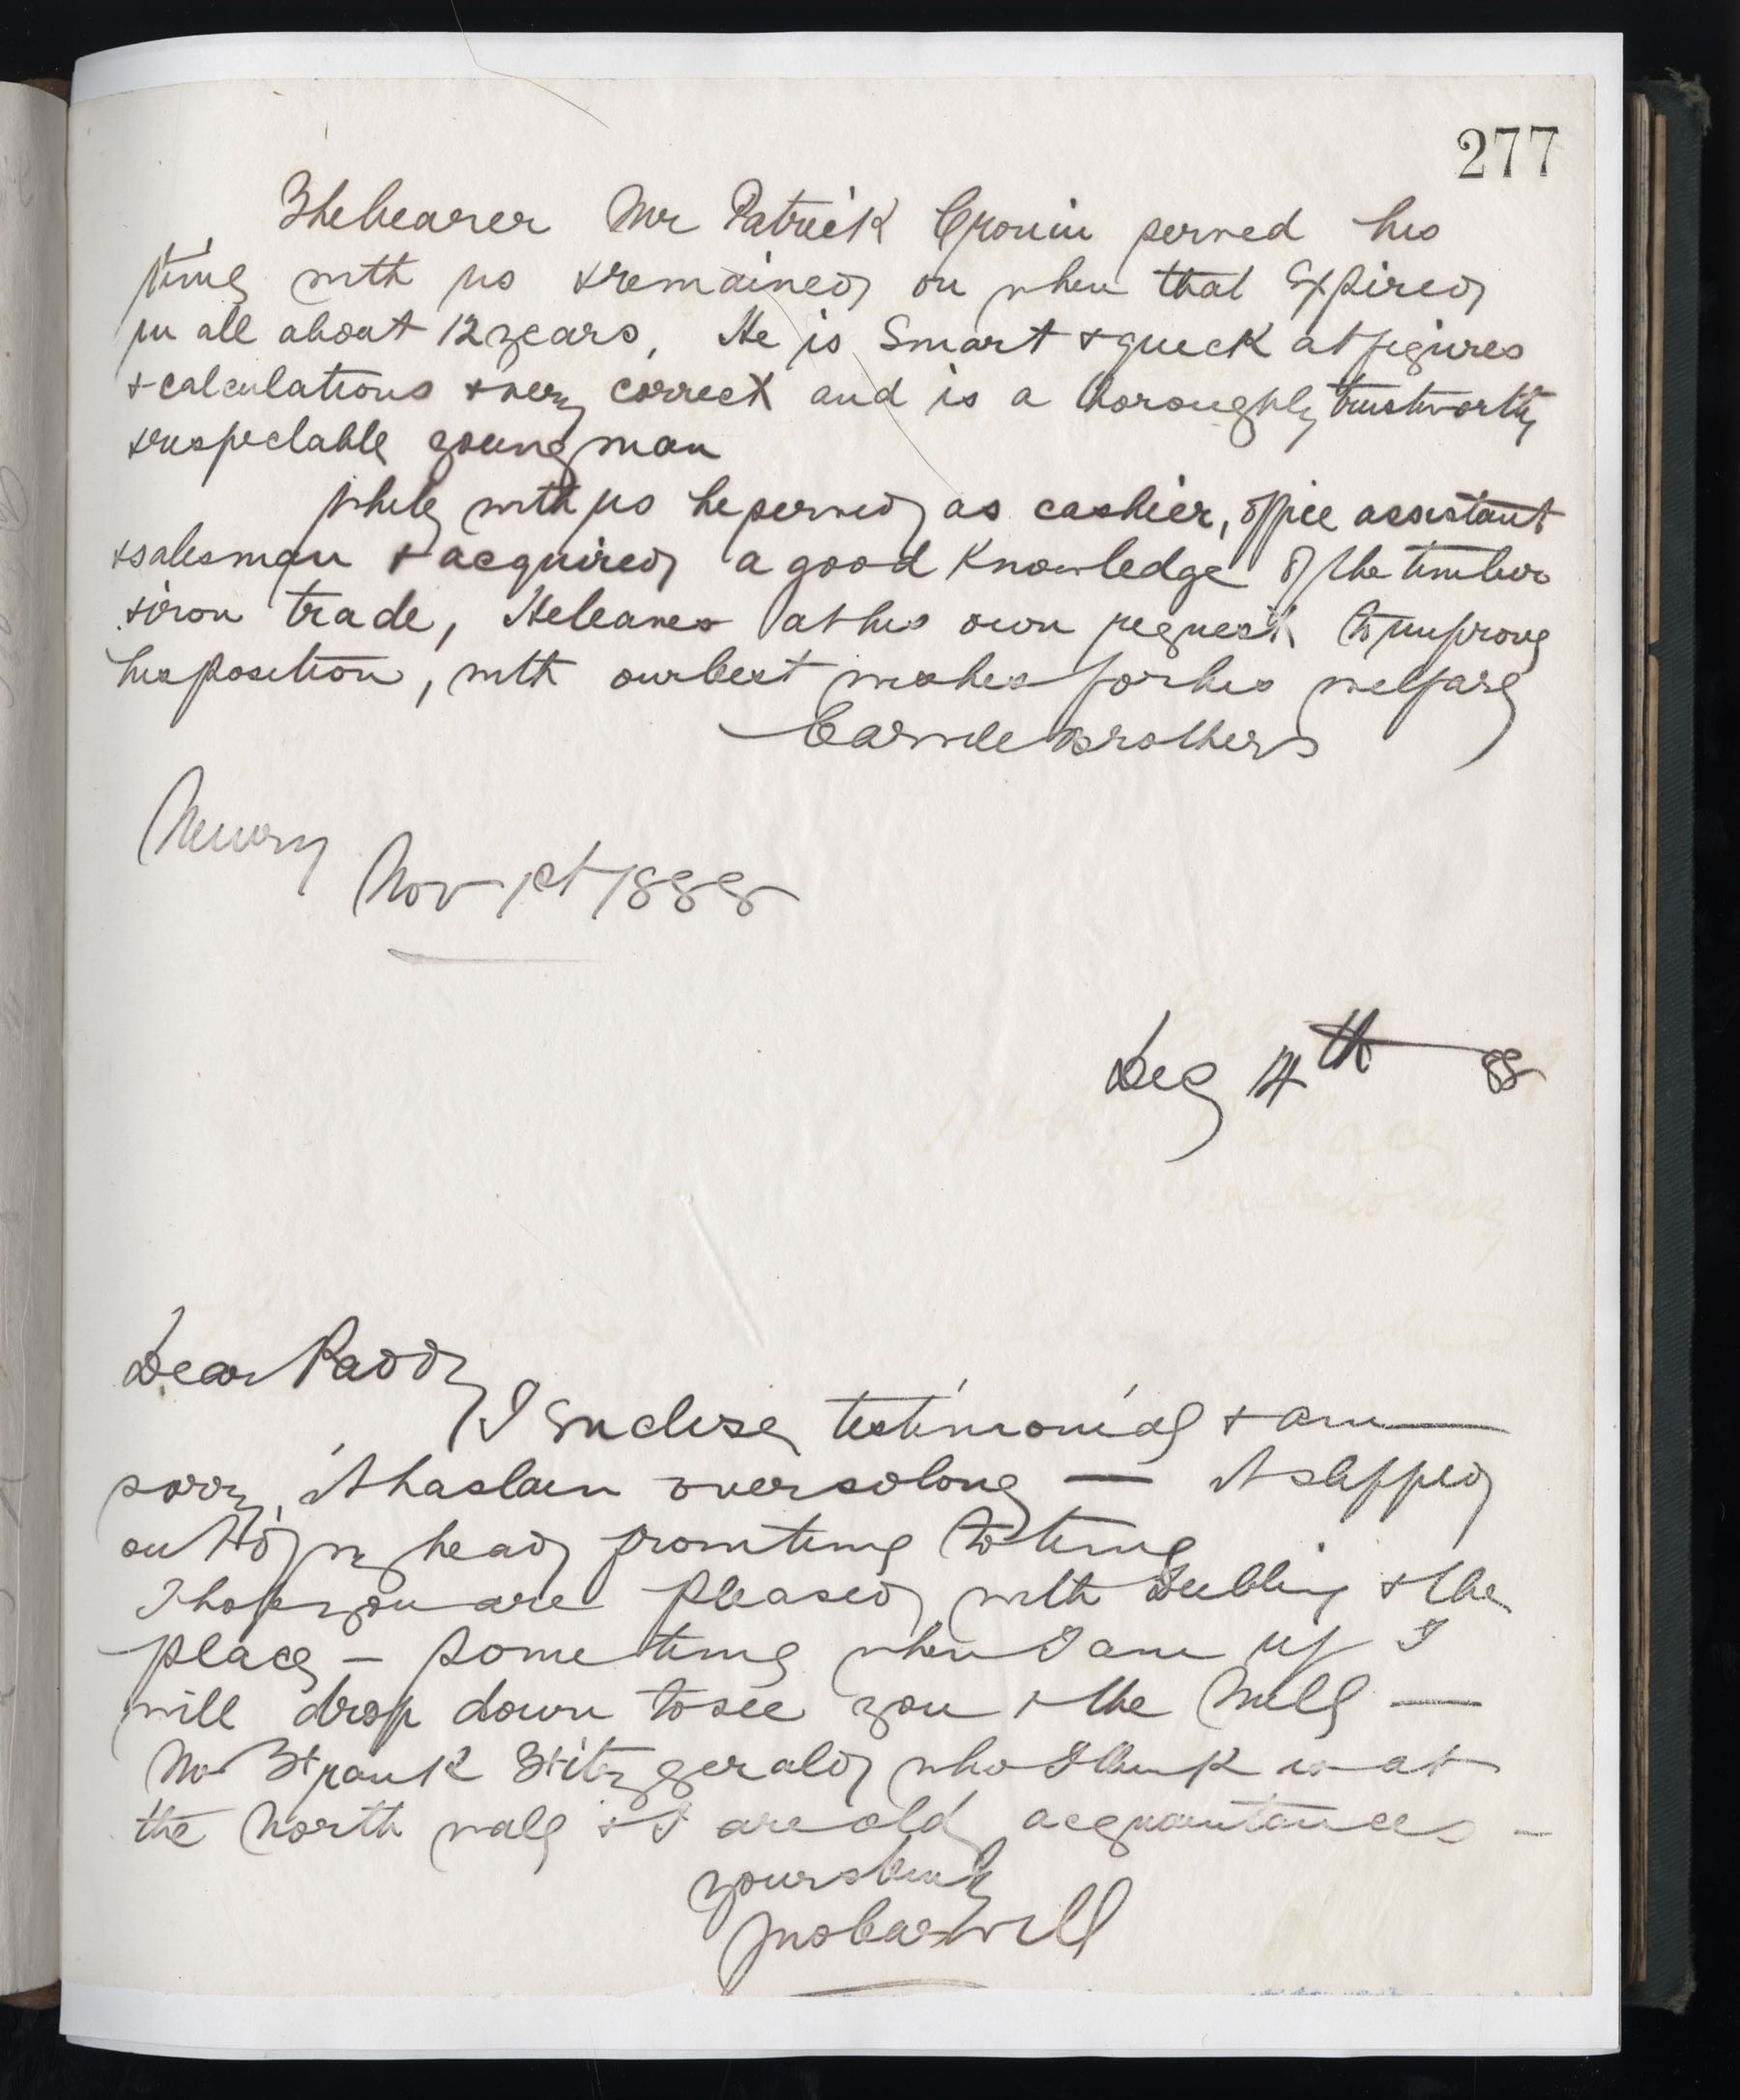 277
The bearer Mr Patrick Cronin served his
time with us & remained on when that Expired
in all about 12 years, He is Smart & quick at figures
& calculations & very correct and is a thoroughly trustworthy
& respectable young man
While with us he served as cashier, office assistant
& salesman & acquired a good Knowledge of the timber
& iron trade, He leaves at his own request to improve
his position, with our best wishes for his welfare
Carvill Brothers
Newry
Nov 1st 1888
Dec 4th 88
Dear Paddy
I Enclose testimonial & am
sorry it has lain over so long — it slipped
out of my head from time to time
I hope you are pleased with Dublin & the
place — Some time when I am up I
will drop down to see you & the Mill —
Mr Frank Fitzgerald who I think is at
the North wall & I are old acquaintances —
yours truly
Jno Carvill